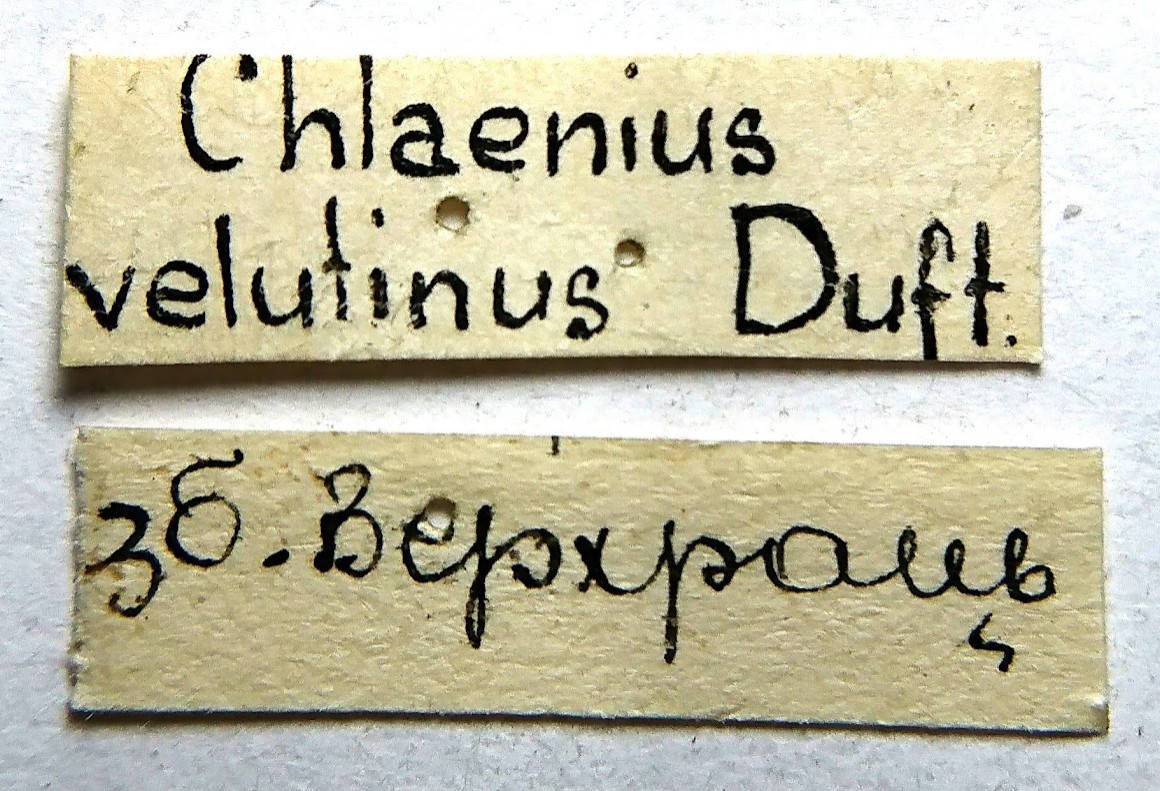 Chlaenius
velutinus Duft.
зб. Верхраць